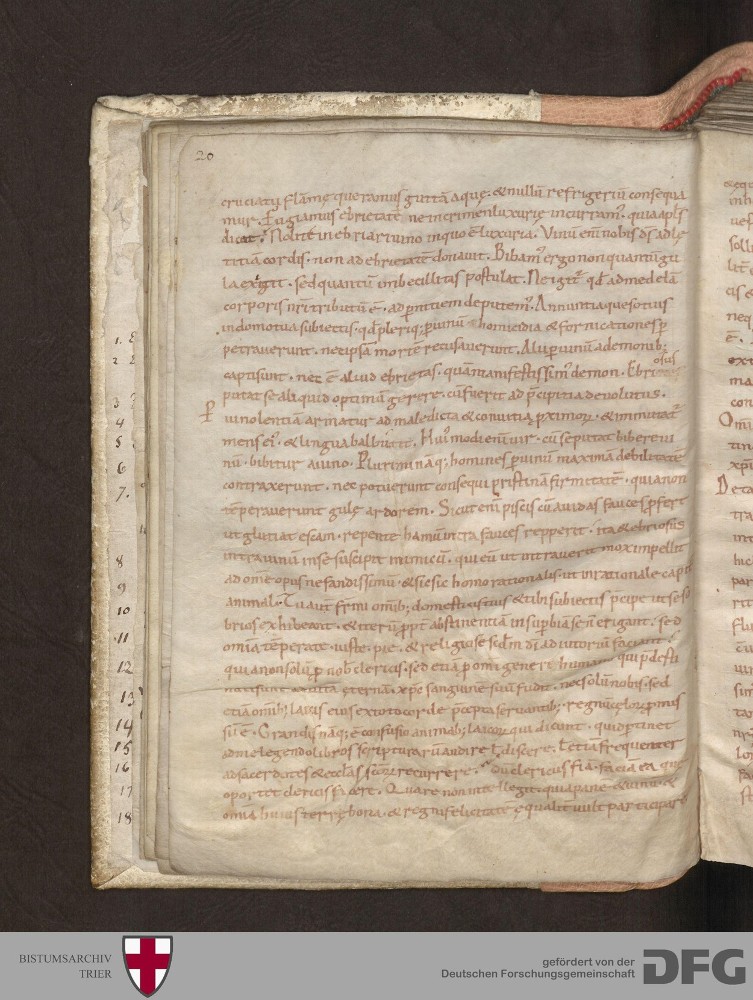 20
cruciatu flāmę queramus guttā aquę; & nullū refrigeriū consequa
mur. Fugiamus ebrietatē ne in crimen luxurię incurram᷒. quia apłs
dicat; Nolite inebriari uino in quo ē luxuria. Vinū enī nobis ds ad lę
titiā cordis. non ad ebrietatē donauit. Bibam᷒ ergo non quantū gu
la exigit. sed quantū inbecillitas postulat. Ne igit᷒ qd ad medelā
corporis nr̄i tributū ē. ad pernitiem deputem᷒. Annuntia queso tuis
in domo tua subiectis. qd pleriq; p uinū homicidia & fornicationes p
petrauerunt. nec ipsā mortē recusauerunt. Alii p uinū a demonib;
capti sunt. nec ē aliud ebrietas. quā manifestissim᷒ demon. Ebri
osus
putat se aliquid optimū gerere. cū fuerit ad p̄cipitia deuolutus.
P
uinolentia armatur ad maledicta & conuitia pximor. & inmutat᷒
mens ei᷒. & lingua balbuttit. Hui᷒ modi enī uir. cū se putat bibere ui
nū. bibitur a uino. Plurimi nāq; homines p uinū maximā debilitatē
contraxerunt. nec potuerunt consequi pristinā firmitatē. quia non
tēperauerunt gulę ardorem. Sicut enī piscis cū auidas fauces pfert
ut glutiat escam. repente hamū intra fauces repperit. ita & ebriosus
intra uinū in se suscipit inimicū. qui eū ut intrauerit mox impellit
ad omē opus nefandissimū. & sic sic homo rationalis. ut inrationale capit᷒
animal. Tu aut frmi omnib; domesticis tuis & tibi subiectis p̄cipe ut se so
brios exhibeant. & iterū ppt abstinentiā in supbia se n̄ erigant. sed
omīa tēperate. iuste. pie. & religiose scdm di adiutoriū faciant.
qui a non solū p nob clericis. sed etiā p omi generi humano qui p̄desti
nati sunt ad uitā ęternā. xpc sanguinē suū fudit. nec solū nobis. sed
etiā omīb; laicis eius ex toto corde p̄cepta seruantib;. regnū cęlor pmis
sū ē. Grandis nāq; ē confusio animab; laicor. qui dicunt. quid ptinet
ad me legendo libros scripturarū audire ł discere. ł etiā frequenter
ad sacerdotes & ecclas scor recurrere. dū clericus fiā. faciā ea quę
oportet clericis facere. Quare non intellegit. quia pane & uinū. &
omīa huius terrę bona. & regni felicitatē ęqualit uult participare
1.
2
3
4
5
6
7.
8
9
10
11
12
13
14
15
16
17
18
BISTUMSARCHIV
TRIER
gefördert von der
Deutschen Forschungsgemeinschaft
DFG